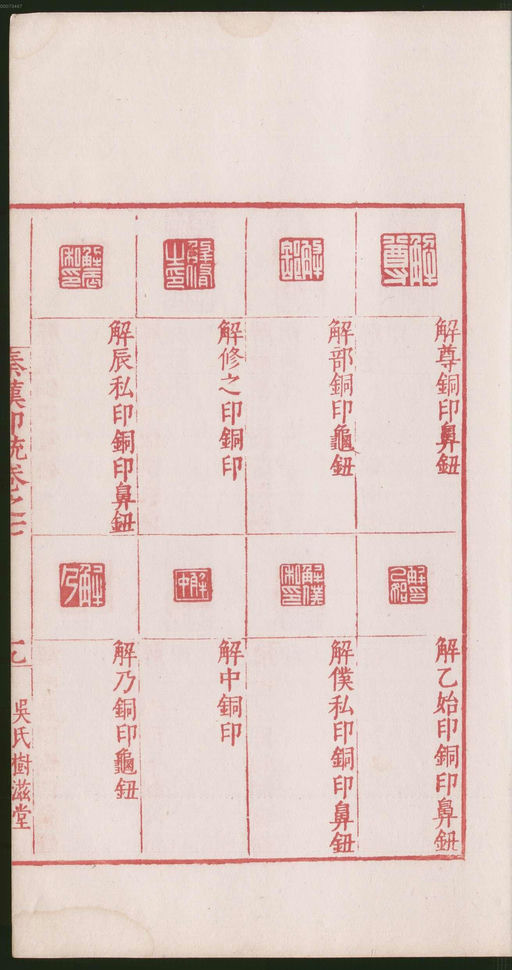 00073467
解尊銅印鼻鈕
解部銅印龜鈕
解修之印銅印
解辰私印銅印鼻鈕
解乙始印銅印鼻鈕
解僕私印銅印鼻鈕
解中銅印
解乃銅印龜鈕
秦漢印統卷之七
九
吳氏樹滋堂